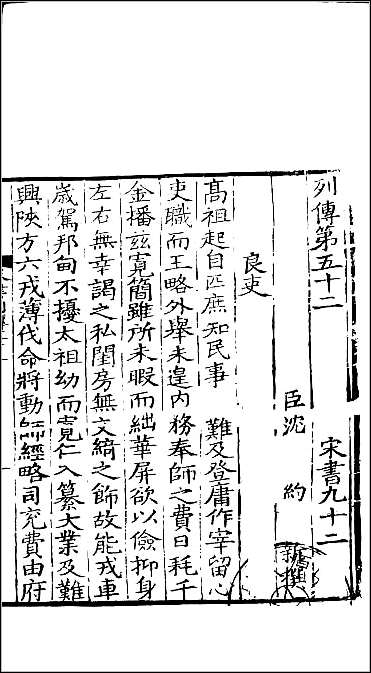 列傳第五十二　宋書九十二
臣沈　約　新撰
良吏
高祖起自匹庶知民事　難及登庸作宰留心
吏職而王略外舉未遑内務奉師之費日耗千
金播茲寬簡雖所未暇而絀華屏欲以儉抑身
左右無幸謁之私閨房無文綺之飾故能戎車
歲駕邦甸不擾太祖幼而寬仁入纂大業及難
興陝方六戎薄伐命將動師經略司兗費由府